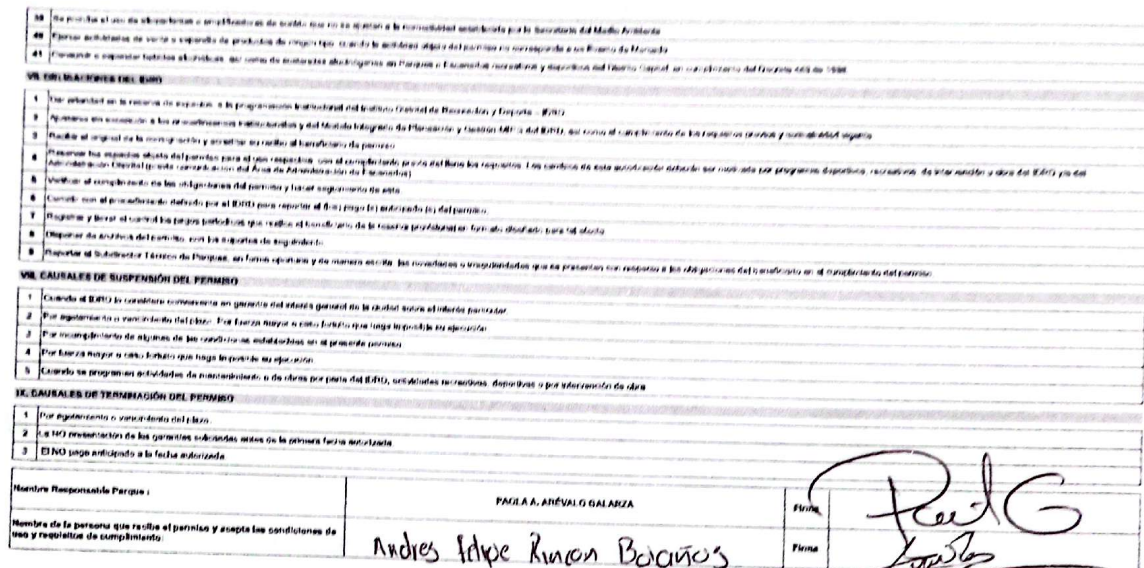 39 Se prohíbe el uso de altavoces o amplificadores de sonido que no se ajusten a la normatividad establecida por la Secretaría del Medio Ambiente
40 Ejercer actividades de venta o expendio de productos de ningún tipo, cuando la actividad objeto del permiso no corresponda a un Evento de Mercado
41 Consumir o expender bebidas alcohólicas, así como de sustancias alucinógenas en Parques o Escenarios recreativos y deportivos del Distrito Capital, en cumplimiento del Decreto de
VII. OBLIGACIONES DEL IDRD
1 Dar prioridad en la reserva de espacios, a la programación Institucional del Instituto Distrital de Recreación y Deporte - IDRD
2 Ajustarse en a los procedimientos Institucionales y del Modelo Integrado de Planeación y Gestión MIPG del IDRD, así como al cumplimiento de los requisitos previos y normatividad vigente
3 Recibir el original de la consignación y acreditar su recibo al beneficiario de permiso
4 Reservar los espacios objeto del permiso para el uso respectivo, con el cumplimiento previo del lleno los requisitos. Los cambios de esta autorización deberán ser motivada por programas deportivos, recreativos, de intervención y obra del IDRD y/o del
Administración Distrital (previa comunicación del Área de Administración de Escenarios)
5 Verificar el cumplimiento de las obligaciones del permiso y hacer seguimiento de este
6 Cumplir con el procedimiento definido por el IDRD para reportar el (los) pago (s) anticipado (s) del permiso.
7 Registrar y llevar el control los pagos periódicos que realice el beneficiario de la reserva provisional en formato diseñado para tal efecto
8 Disponer de archivos del permiso, con los soportes de seguimiento
9 Reportar al Subdirector Técnico de Parques, en forma oportuna y de manera escrita, las novedades o irregularidades que se presenten con respecto a las obligaciones del beneficiario en el cumplimiento del permiso
VIII. CAUSALES DE SUSPENSIÓN DEL PERMISO
1 Cuando el IDRD lo considere conveniente en garantía del interés general de la ciudad sobre el interés particular.
2 Por agotamiento o vencimiento del plazo. Por fuerza mayor o caso fortuito que haga imposible su ejecución
3 Por incumplimiento de algunas de las condiciones establecidas en el presente permiso
4 Por fuerza mayor o caso fortuito que haga imposible su ejecución
5 Cuando se programen actividades de mantenimiento o de obras por parte del IDRD, actividades recreativas, deportivas o por intervención de obra
IX. CAUSALES DE TERMINACIÓN DEL PERMISO
1 Por agotamiento o vencimiento del plazo.
2 La NO presentación de las garantías solicitadas antes de la primera fecha autorizada
3 El NO pago anticipado a la fecha autorizada
Nombre Responsable Parque : PAOLA A. ARÉVALO GALARZA Firma
Nombre de la persona que recibe el permiso y acepta las condiciones de
uso y requisitos de cumplimiento: Andres felipe Rincon Bolaños Firma